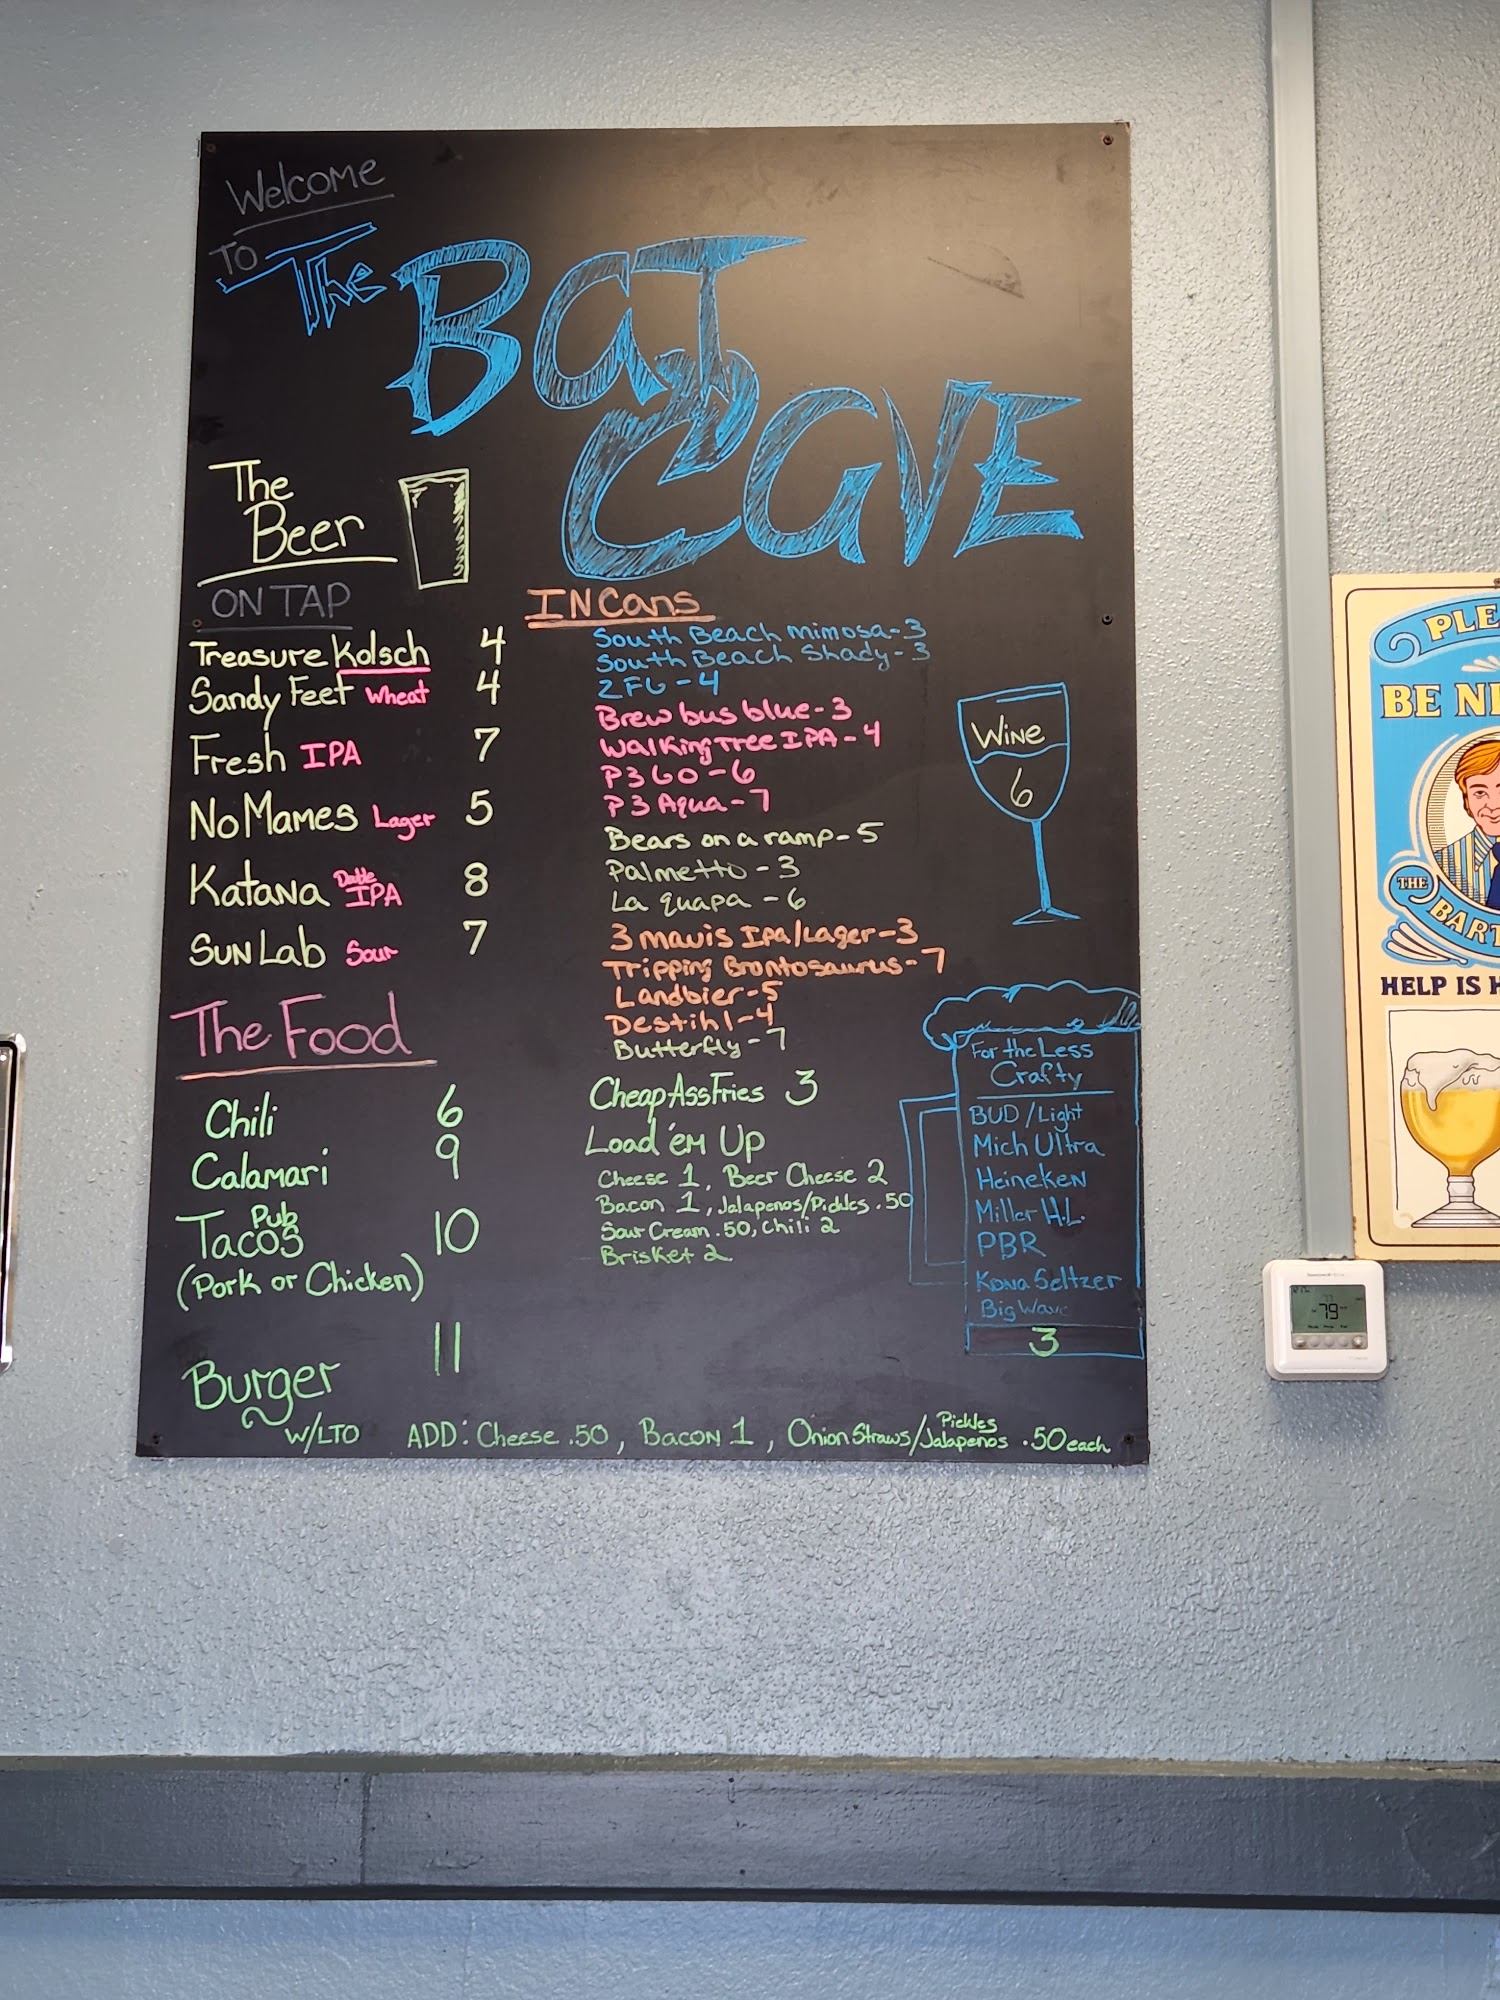 Welcome
TO The
BaT
CaVE
The
Beer
ON TAP
Treasure Kolsch 4
Sandy Feet Wheat 4
Fresh IPA 7
No Mames Lager 5
Katana Double IPA 8
SUN Lab Sour 7
IN Cans
South Beach Mimosa - 3
South Beach Shady - 3
- 4
Brew bus blue - 3
Walking Tree IPA - 4
P3 GO - 6
P3 Aqua - 7
Bears on a ramp - 5
Palmetto - 3
La guapa - 6
3 mavis Ipa/Lager - 3
Tripping Brontosaurus - 7
Landbier - 5
Destihl - 4
Butterfly - 7
WINE
6
The Food
Chili 6
Calamari 9
Pub
Tacos 10
(Pork or Chicken)
Burger 11
W/LTO
ADD: Cheese .50, Bacon 1, Onion Straws/Pickles Jalapenos .50 each
Cheap Ass Fries 3
Load 'em Up
Cheese 1, Beer Cheese 2
Bacon 1, Jalapenos/Pickles .50
Sour Cream .50, Chili 2
Brisket 2
For the Less
Crafty
BUD / Light
Mich Ultra
Heineken
Miller H.L.
PBR
Kona Seltzer
Big Wave
3
PLE
BE NI
THE
BART
HELP IS H
79